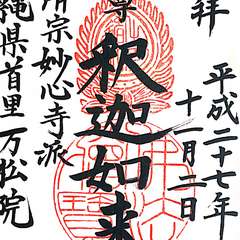 拝
平成二十七年
十一月二日
尊
釈迦如来
済宗妙心寺派
縄県首里万松院